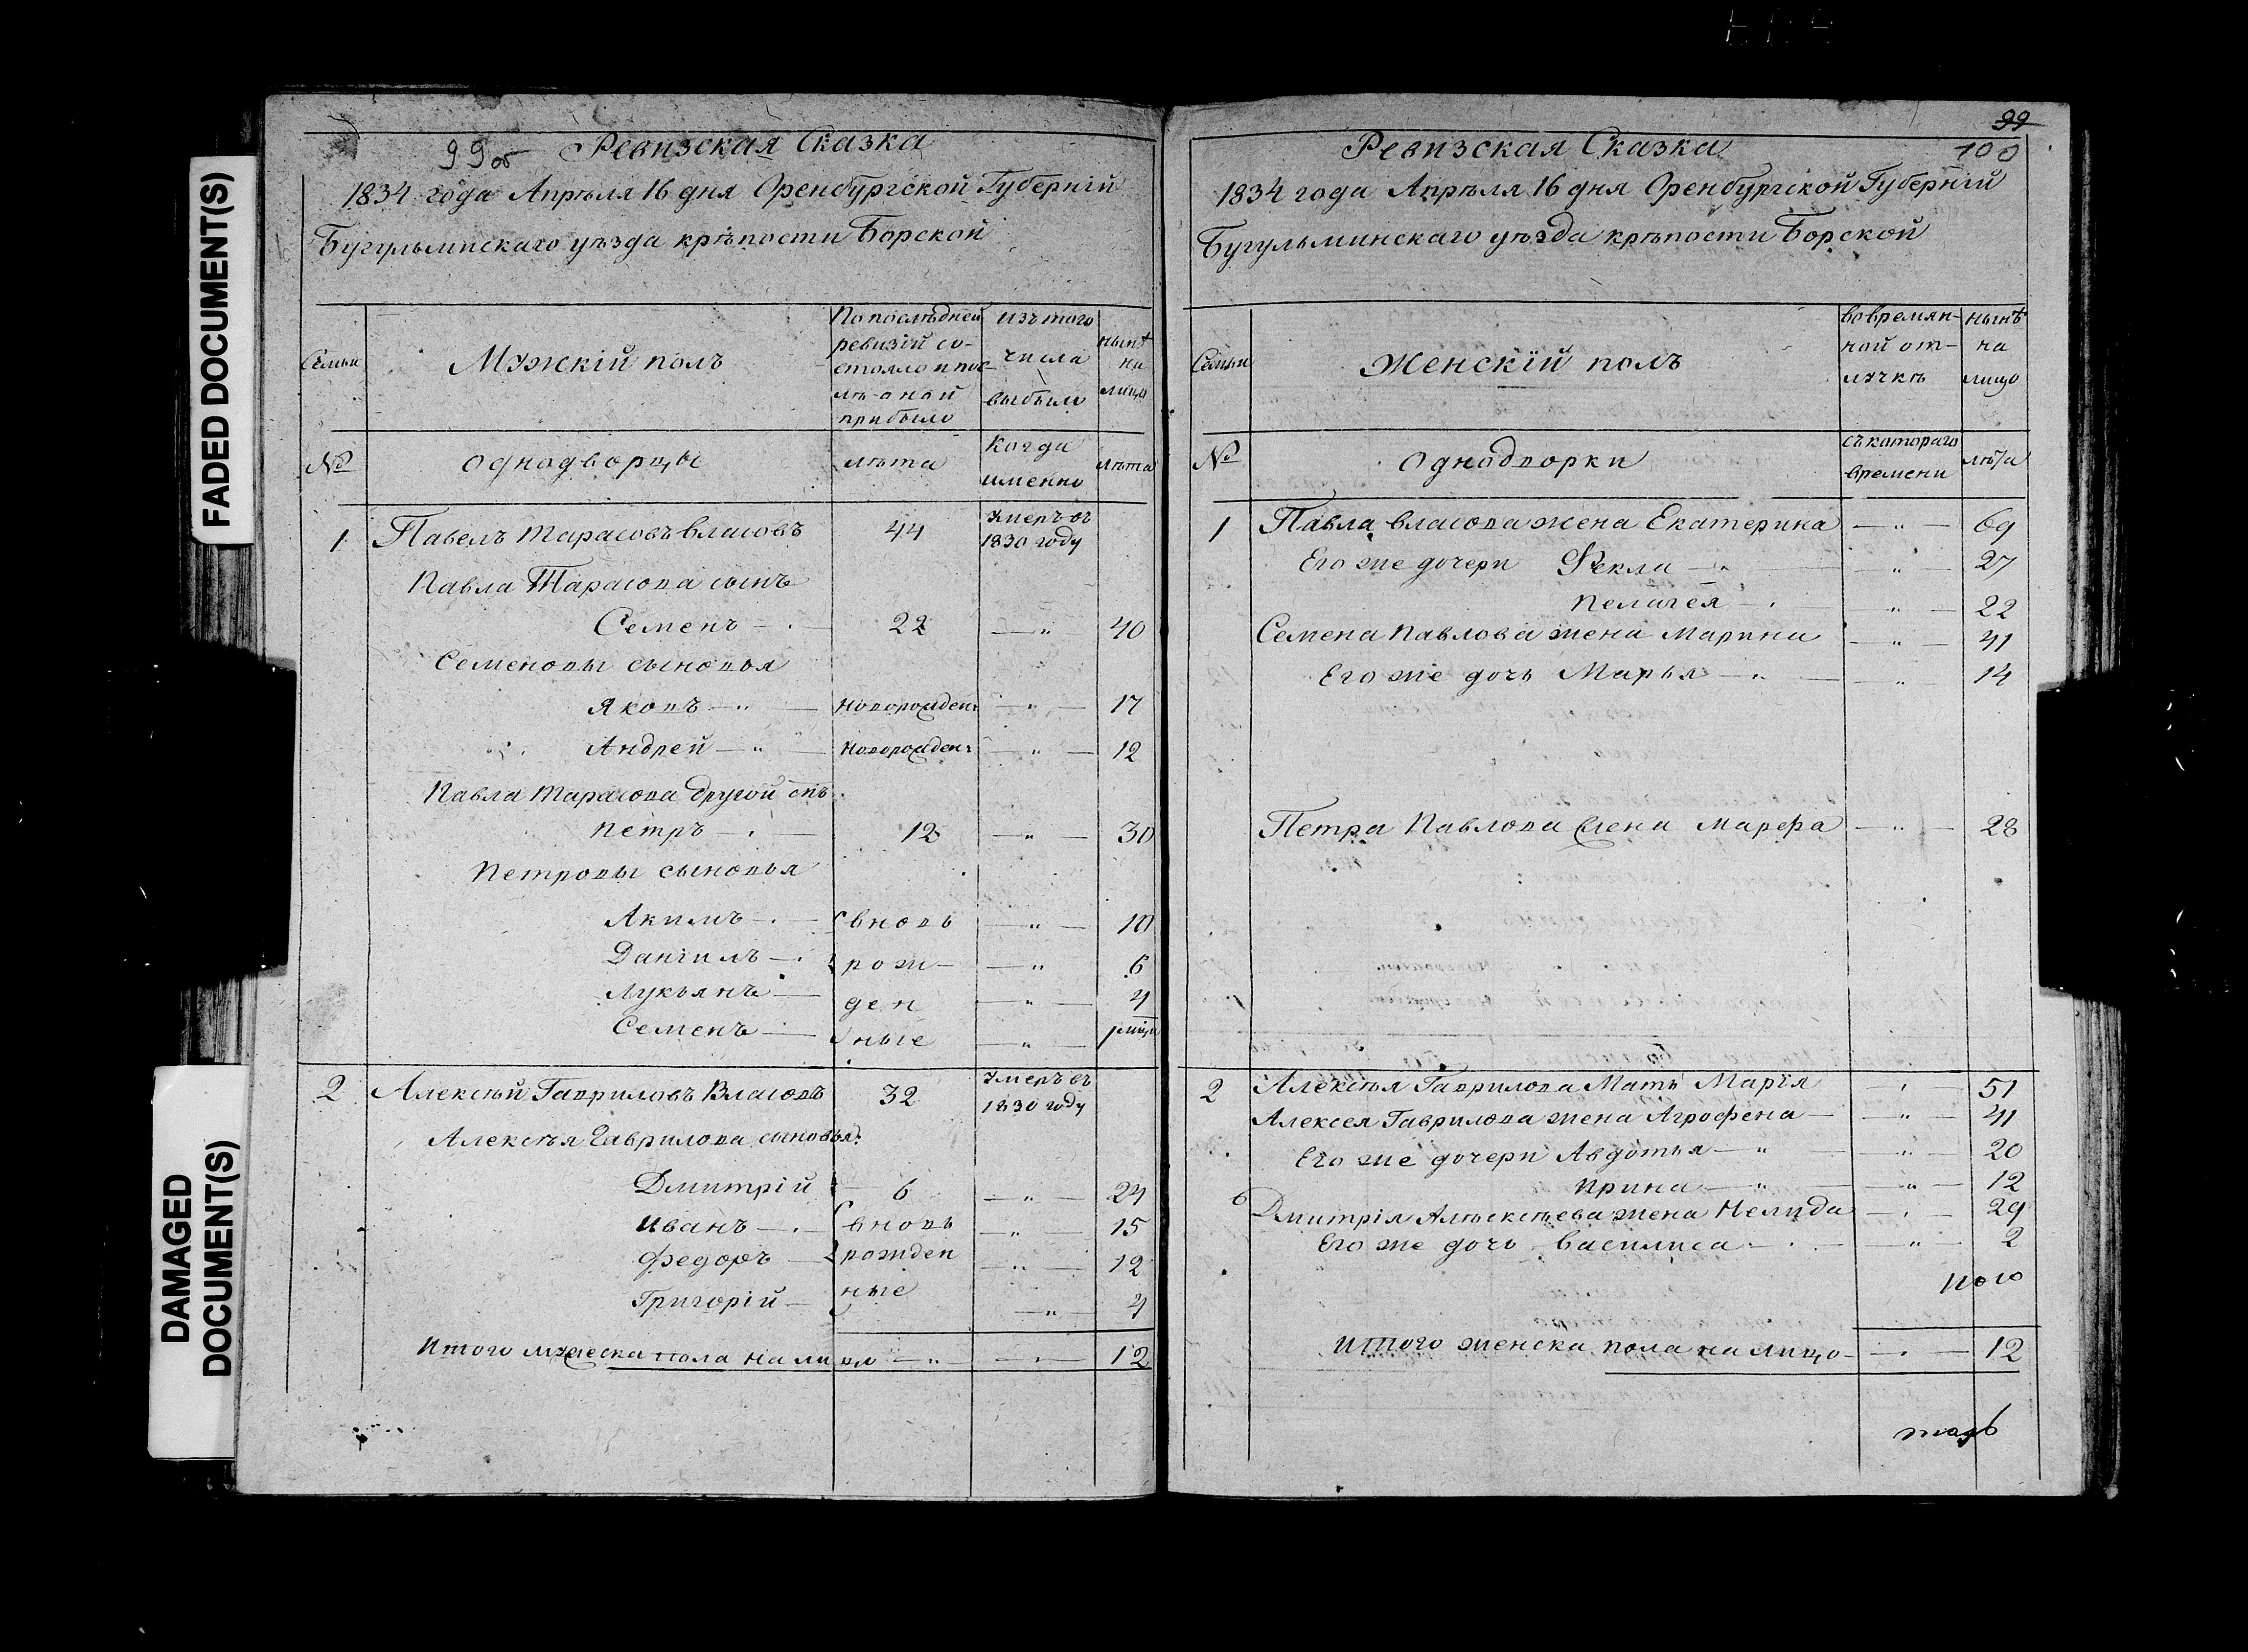 FADED DOCUMENT(S)
DAMAGED
DOCUMENT(S)
99об Ревизская Сказка
1834 года Апрѣля 16 дня Оренбургской Губерніи
Бугульминскаго уѣзда крѣпости Борской
Семьи
Мужскій полъ
По послѣдней
ревизіи со-
стояло и пос-
лѣ оной
прибыло
изъ того
числа
выбыло
нынѣ
на
лицо
№
однодворцы
лѣта
когда
именно
лѣта
1 Павелъ Тарасовъ Власовъ 44 Умеръ въ
1830 году
Павла Тарасова сынъ
Семенъ 22 — " 40
Семеновы сыновья
Яковъ — " — новорожден: — " — 17
Андрей — " новорожден: — " — 12
Павла Тарасова другой снъ
Петръ 12 — " — 30
Петровы сыновья
Акимъ вновь — " — 10
Дангилъ рож- — " 6
Лукьянъ ден — " — 4
Семенъ ные — " —
2 Алексѣй Гавриловъ Власовъ 32 Умеръ въ
1830 году
Алексѣя Гаврилова сыновья:
Дмитрій 6 — " — 24
Иванъ вновь — " — 15
Федоръ рожден — " — 12
Григорій ные — " 4
Итого мужеска пола на лицо — " — 12
99
Ревизская Сказка 100
1834 года Апрѣля 16 дня Оренбургской Губерніи
Бугульминскаго уѣзда крѣпости Борской
Семьи
Женскій полъ
во времян-
ной от-
лучкѣ
нынѣ
на
лицо
№
Однодворки
съ котораго
времени
лѣта
1 Павла Власова жена Екатерина — " — 69
Его же дочери Фекла — " — 27
Пелагея — " — 22
Семена Павлова жена Марина — " — 41
Его же дочь Марья — " — 14
Петра Павлова жена Марфа — " — 28
2 Алексѣя Гаврилова Мать Марія 51
Алексея Гаврилова жена Агрофена — " — 41
Его же дочери Авдотья — " — " — 20
Ирина — " — " — 12
Дмитрія Алѣксѣева жена Нелида — 29
Его же дочь Василиса — " — 2
Итого женска пола на лицо — 12